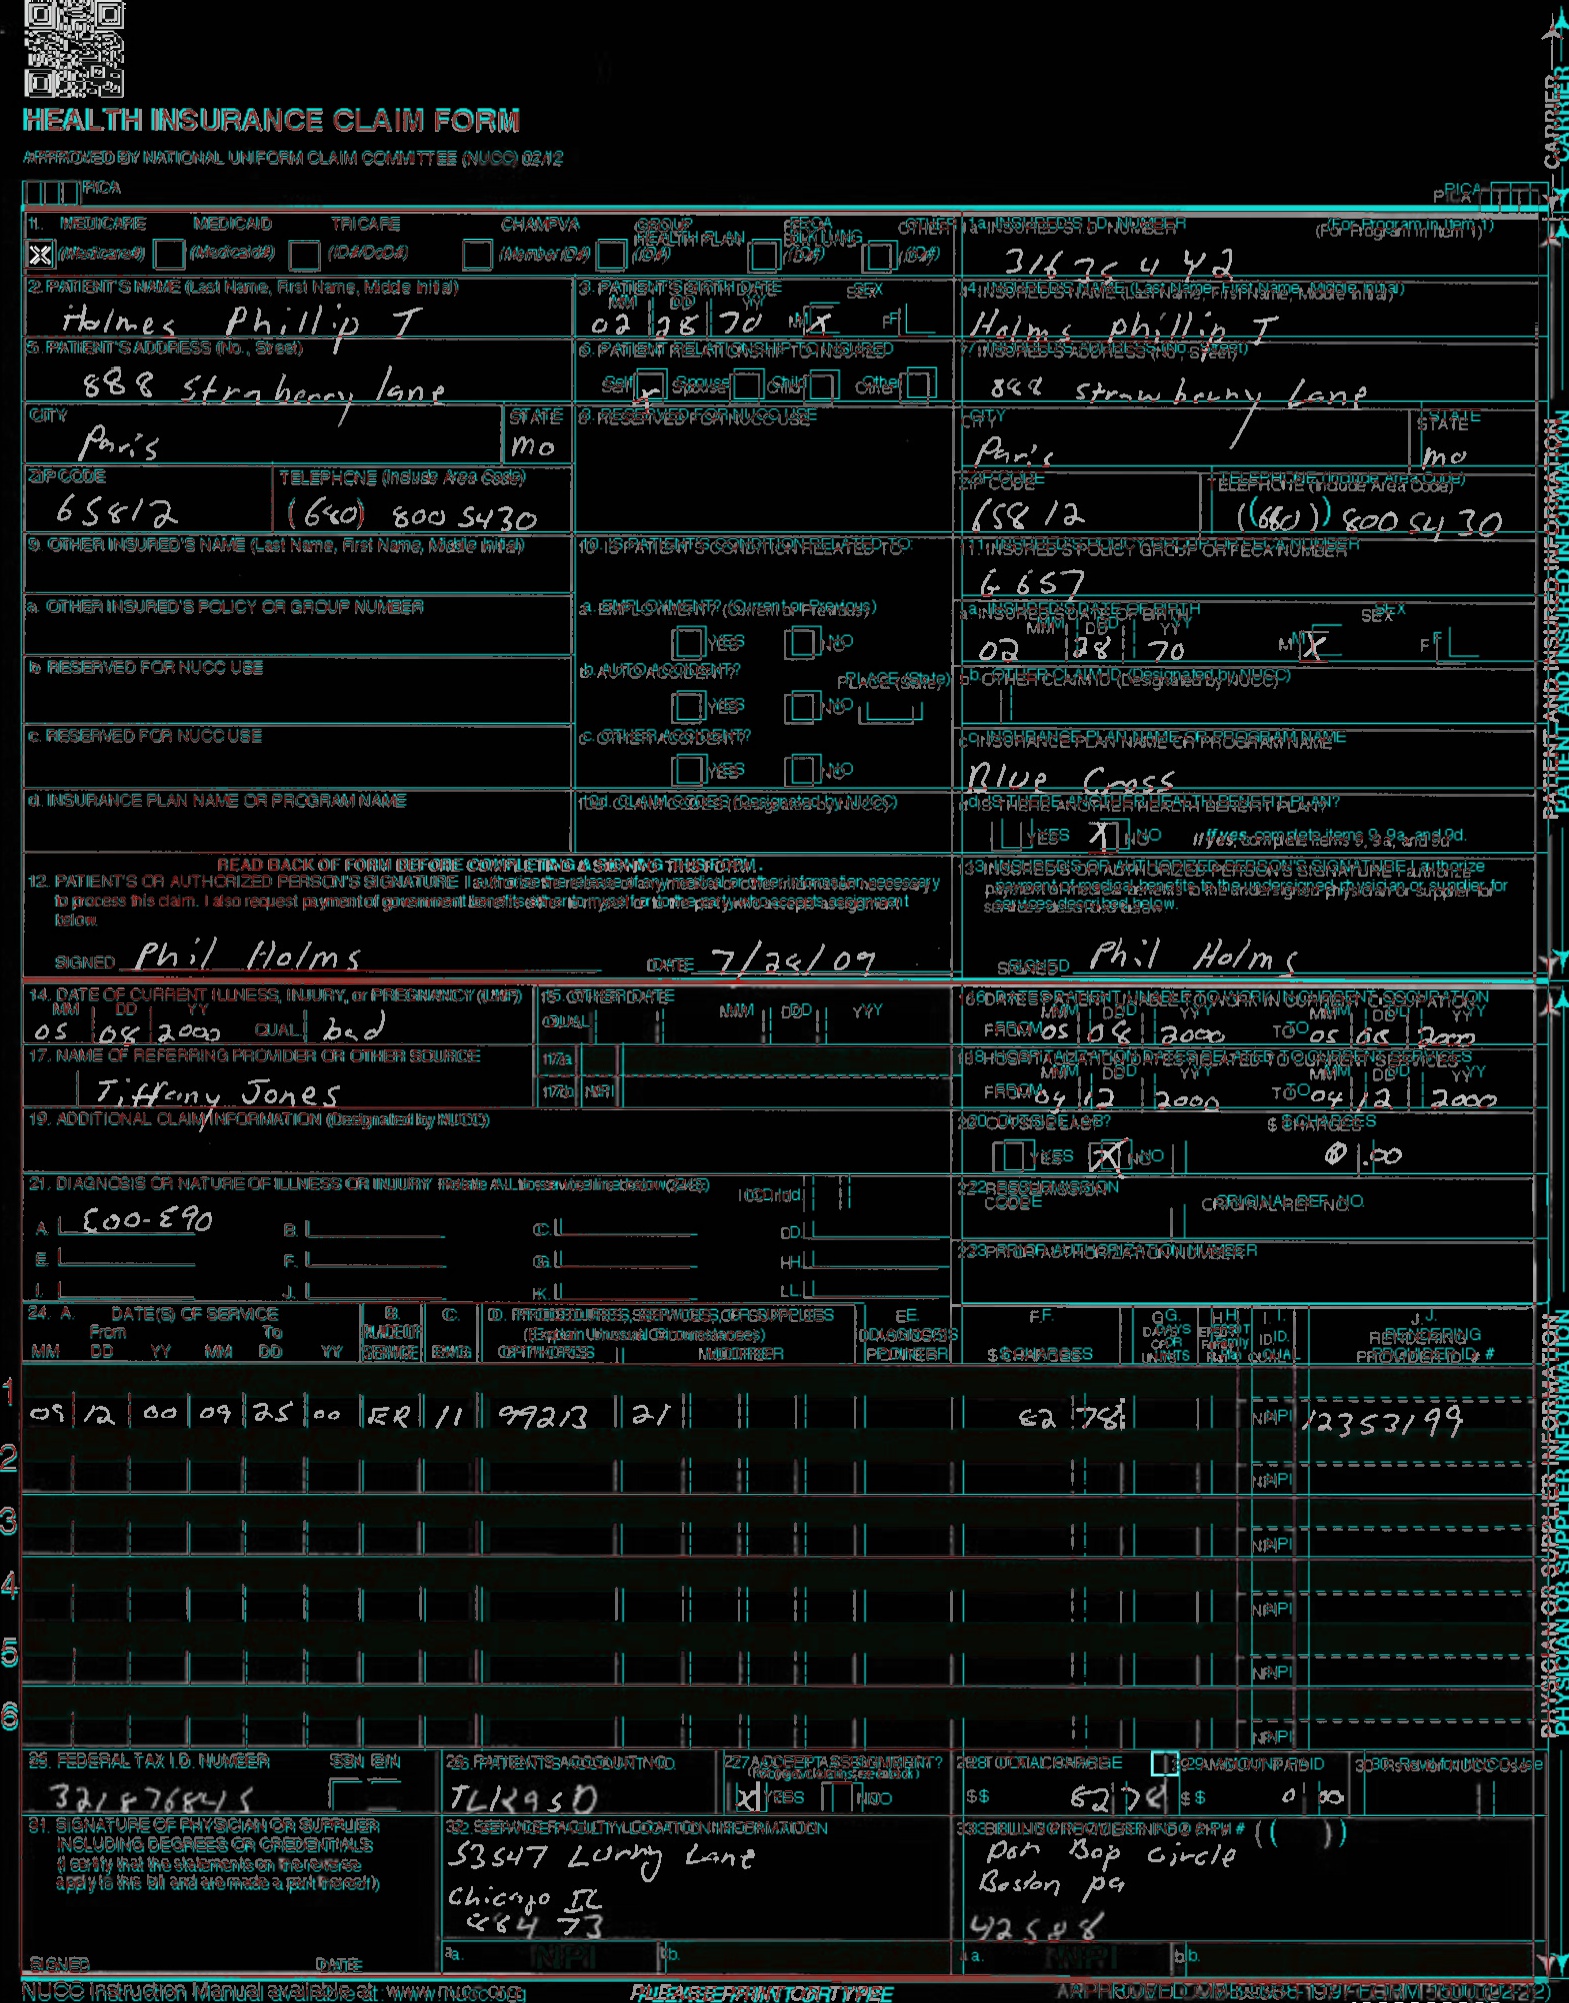 HEALTH INSURANCE CLAIM FORM
APPROVED BY NATIONAL UNIFORM CLAIM COMMITTEE (NUCC) 02/12
PICA PICA
CARRIER
1. MEDICARE MEDICAID TRICARE CHAMPVA GROUP HEALTH PLAN FECA BLK LUNG OTHER
(Medicare#) (Medicaid#) (ID#/DoD#) (Member ID#) (ID#) (ID#) (ID#)
1a. INSURED'S I.D. NUMBER (For Program in Item 1)
2. PATIENT'S NAME (Last Name, First Name, Middle Initial)
Holmes Phillip T
3. PATIENT'S BIRTH DATE SEX
MM DD YY
02 28 70 M X F
4. INSURED'S NAME (Last Name, First Name, Middle Initial)
Holms phillip T
5. PATIENT'S ADDRESS (No., Street)
888 Strabenny lane
6. PATIENT RELATIONSHIP TO INSURED
Self X Spouse Child Other
7. INSURED'S ADDRESS (No., Street)
888 Lane
CITY STATE
Paris mo
8. RESERVED FOR NUCC USE
CITY STATE
Paris mo
ZIP CODE TELEPHONE (Include Area Code)
65812 (660) 800 5430
ZIP CODE TELEPHONE (Include Area Code)
65812 (660) 800 5430
9. OTHER INSURED'S NAME (Last Name, First Name, Middle Initial)
10. IS PATIENT'S CONDITION RELATED TO:
11. INSURED'S POLICY GROUP OR FECA NUMBER
G 657
a. OTHER INSURED'S POLICY OR GROUP NUMBER
a. EMPLOYMENT? (Current or Previous)
YES NO
a. INSURED'S DATE OF BIRTH SEX
MM DD YY
02 28 70 M X F
b. RESERVED FOR NUCC USE
b. AUTO ACCIDENT? PLACE (State)
YES NO
b. OTHER CLAIM ID (Designated by NUCC)
c. RESERVED FOR NUCC USE
c. OTHER ACCIDENT?
YES NO
c. INSURANCE PLAN NAME OR PROGRAM NAME
Blue Cross
d. INSURANCE PLAN NAME OR PROGRAM NAME
10d. CLAIM CODES (Designated by NUCC)
d. IS THERE ANOTHER HEALTH BENEFIT PLAN?
YES X NO If yes, complete items 9, 9a, and 9d.
PATIENT AND INSURED INFORMATION
READ BACK OF FORM BEFORE COMPLETING & SIGNING THIS FORM.
12. PATIENT'S OR AUTHORIZED PERSON'S SIGNATURE I authorize the release of any medical or other information necessary
to process this claim. I also request payment of government benefits either to myself or to the party who accepts assignment
below.
SIGNED Phil Holms DATE 7/28/09
13. INSURED'S OR AUTHORIZED PERSON'S SIGNATURE I authorize
payment of medical benefits to the undersigned physician or supplier for
services described below.
SIGNED Phil Holms
14. DATE OF CURRENT ILLNESS, INJURY, or PREGNANCY (LMP)
MM DD YY
05 08 2000 QUAL. bad
15. OTHER DATE
QUAL. MM DD YY
16. DATES PATIENT UNABLE TO WORK IN CURRENT OCCUPATION
MM DD YY MM DD YY
FROM 05 08 2000 TO 05 08 2000
17. NAME OF REFERRING PROVIDER OR OTHER SOURCE
Tiffany Jones
17a.
17b. NPI
18. HOSPITALIZATION DATES RELATED TO CURRENT SERVICES
MM DD YY MM DD YY
FROM 04 12 2000 TO 04 12 2000
19. ADDITIONAL CLAIM INFORMATION (Designated by NUCC)
20. OUTSIDE LAB? $ CHARGES
YES X NO 0 .00
21. DIAGNOSIS OR NATURE OF ILLNESS OR INJURY Relate A-L to service line below (24E) ICD Ind.
A. E00-E90 B. C. D.
E. F. G. H.
I. J. K. L.
22. RESUBMISSION CODE ORIGINAL REF. NO.
23. PRIOR AUTHORIZATION NUMBER
24. A. DATE(S) OF SERVICE B. C. D. PROCEDURES, SERVICES, OR SUPPLIES E. F. G. H. I. J.
From To PLACE OF (Explain Unusual Circumstances) DIAGNOSIS DAYS OR UNITS EPSDT Family Plan ID. RENDERING
MM DD YY MM DD YY SERVICE EMG CPT/HCPCS MODIFIER POINTER $ CHARGES QUAL. PROVIDER ID. #
1
09 12 00 09 25 00 ER 11 99213 21 62 78 NPI 12353199
2 NPI
3 NPI
4 NPI
5 NPI
6 NPI
PHYSICIAN OR SUPPLIER INFORMATION
25. FEDERAL TAX I.D. NUMBER SSN EIN
321876845
26. PATIENT'S ACCOUNT NO.
27. ACCEPT ASSIGNMENT?
X YES NO
28. TOTAL CHARGE
$ 62 78
29. AMOUNT PAID
$ 0 00
30. Rsvd for NUCC Use
31. SIGNATURE OF PHYSICIAN OR SUPPLIER
INCLUDING DEGREES OR CREDENTIALS
(I certify that the statements on the reverse
apply to this bill and are made a part thereof.)
SIGNED DATE
32. SERVICE FACILITY LOCATION INFORMATION
53547 Lane
Chicago IL
88473
a. NPI b.
33. BILLING PROVIDER INFO & PH # ( )
Bop circle
Boston pa
42588
a. NPI b.
NUCC Instruction Manual available at: www.nucc.org
PLEASE PRINT OR TYPE
APPROVED OMB-0938-1197 FORM 1500 (02-12)